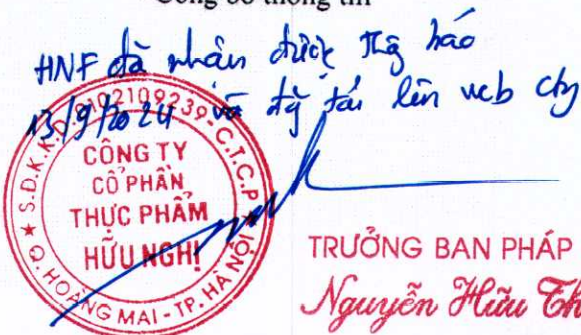 Công bố thông tin
HNF đã nhận được thg báo
13/9/2024 và đg tải lên web cty
S.D.K.K.D: 0102109239 - C.T.C.P
CÔNG TY
CỔ PHẦN
THỰC PHẨM
HỮU NGHỊ
Q. HOÀNG MAI - TP. HÀ NỘI
TRƯỞNG BAN PHÁP
Nguyễn Hữu Th